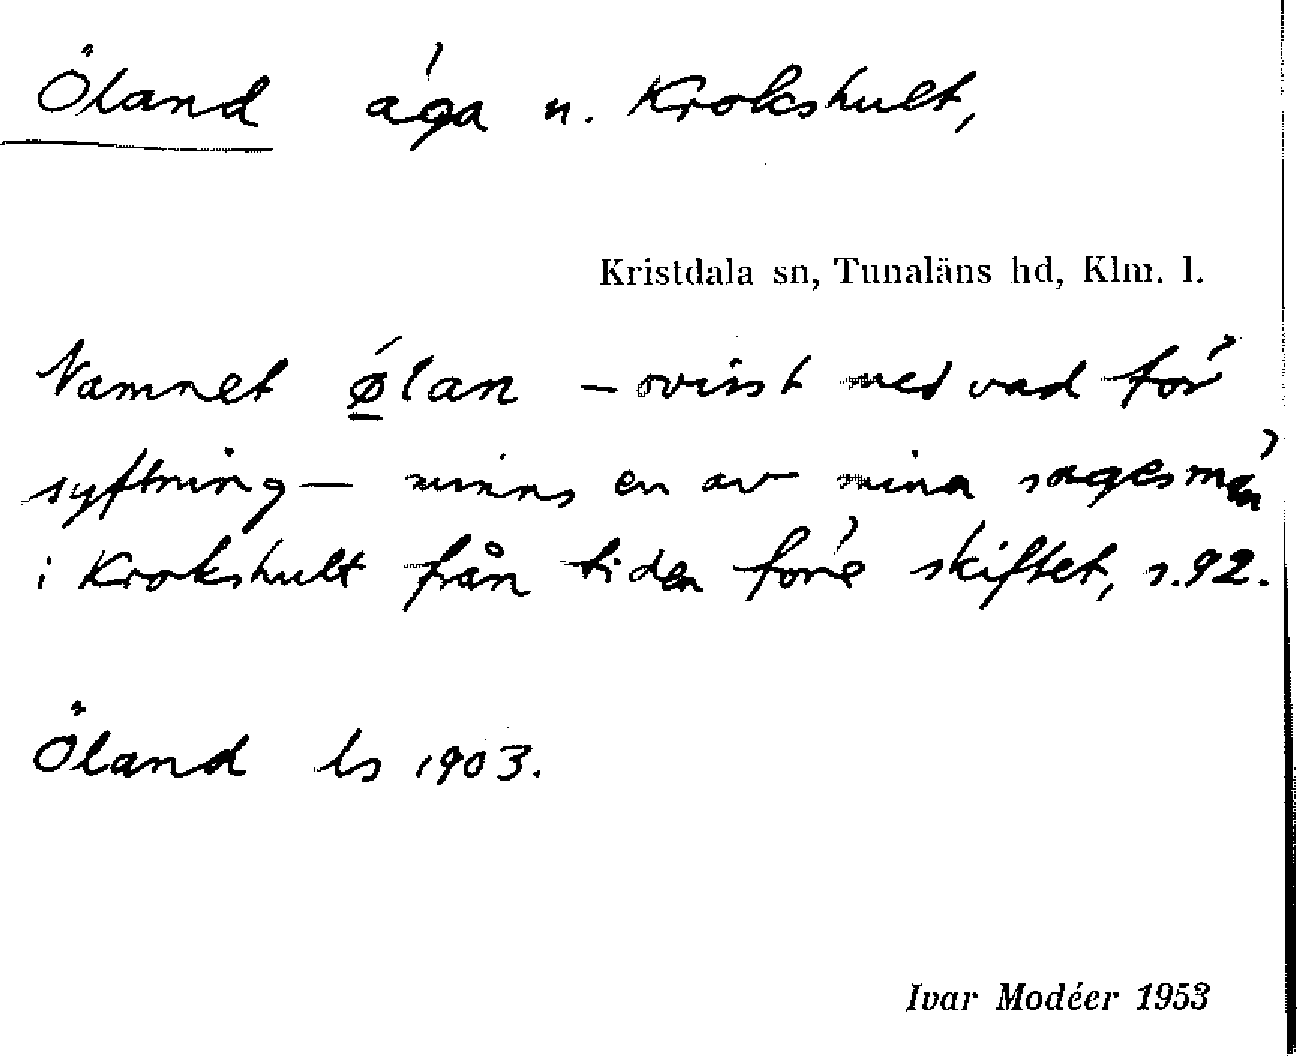 Öland äga n. Krokshult,
Kristdala sn, Tunaläns hd, Klm. l.
Namnet ǿlan – ovisst med vad för
syftning – minns en av mina sagesmän
i Krokshult från tiden före skiftet, s. 92.
Öland ls 1903.
Ivar Modéer 1953